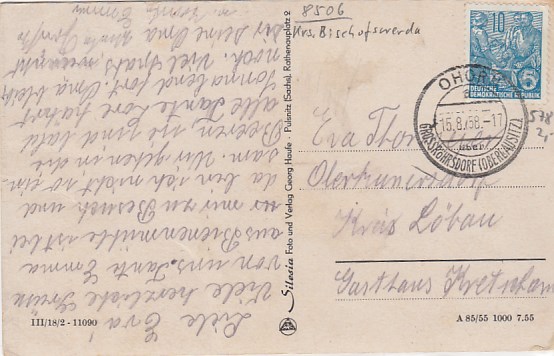 8506
Krs. Bischofswerda
10
DEUTSCHE
DEMOKRATISCHE REPUBLIK
5
OHORN
15.8.58.-17
über
GROSSRÖHRSDORF (OBERLAUSITZ)
578
Eva
Oberkunersdorf
Kreis Löbau
Gasthaus Kretscham
Liebe Eva!
Viele herzliche Grüße
von uns. Tante Emma
aus Bienenmühle ist bei
mir zu Besuch und
da bin ich nicht so ein
sam. Wir gehen in die
Beeren, sie sind
alle. Tante Lore fährt
Sonnabend fort. Oma bleibt
noch. Viel Spaß wünscht
Dir Deine Oma
Tante Emma
Silesia Foto und Verlag Georg Haufe · Pulsnitz (Sachs), Rathenauplatz 2
III/18/2 - 11090
A 85/55 1000 7.55